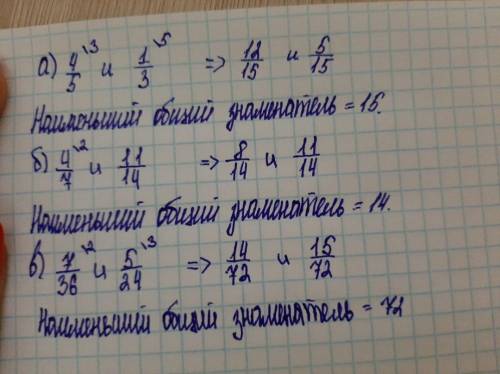 а) 4/5 \3 и 1/3 \5 => 12/15 и 5/15
Наименьший общий знаменатель = 15.
б) 4/7 \2 и 11/14 => 8/14 и 11/14
Наименьший общий знаменатель = 14.
в) 7/36 \2 и 5/24 \3 => 14/72 и 15/72
Наименьший общий знаменатель = 72